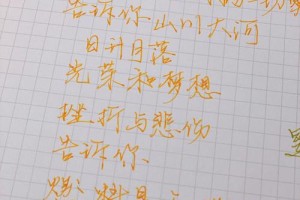 告诉你山川大河
日升月落
光荣和梦想
挫折与悲伤
告诉你